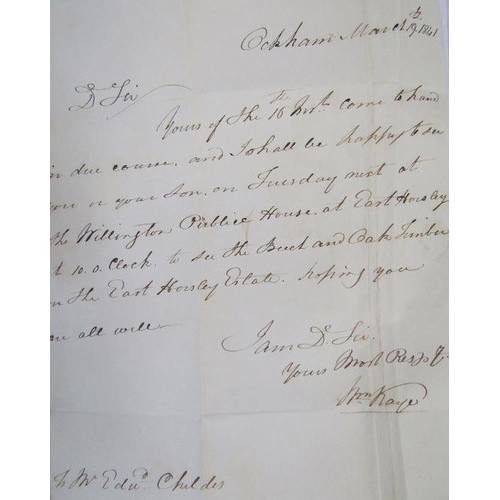 Ockham March 19th 1841
Dr Sir
Yours of the 16th Inst. came to hand
in due course. and I shall be happy to see
you or your Son. on Tuesday next at
the Willington Publice House. at East Horsley
at 10. O. Clock. to see the Beech and Oak Timber
on the East Horsley Estate. hoping you
are all well
I am Dr Sir.
Yours Most Resp
Wm Kaye
To Mr Edwd Childs